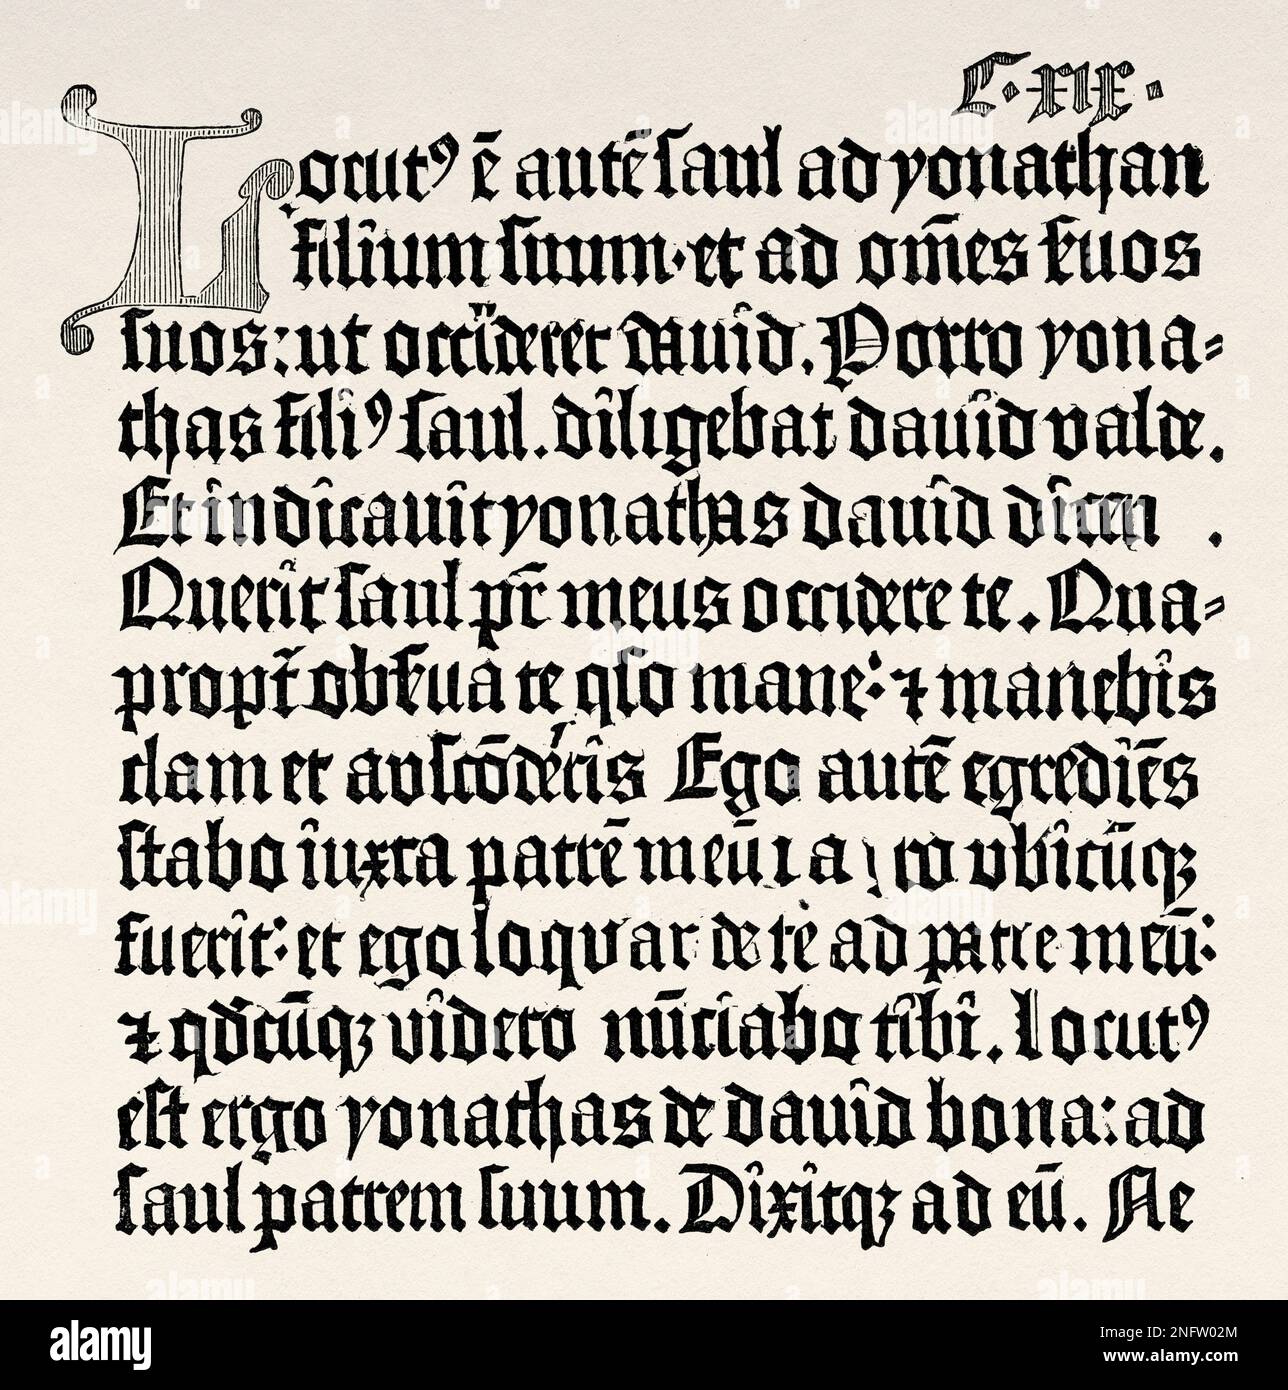 C·xix·
Locutꝰ ē autē ſaul ad yonathan
filium ſuum·et ad om̄es ẜuos
ſuos: ut occideret dauid. Porro yona⸗
thas filiꝰ ſaul. diligebat dauid valde.
Et indicauit yonathas dauid dicen .
Querit ſaul pr̄ meus occidere te. Qua⸗
propt̄ obẜua te qſo mane: ⁊ manebis
clam et abſcōderis Ego autē egrediēs
ſtabo iuxta patrē meū ubicūqꝫ
fuerit: et ego loquar de te ad patre meū:
⁊ qdcūqꝫ videro nūciabo tibi. Locutꝰ
eſt ergo yonathas de dauid bona: ad
ſaul patrem ſuum. Dixitqꝫ ad eū. Ne
alamy
Image ID: 2NFW02M
www.alamy.com